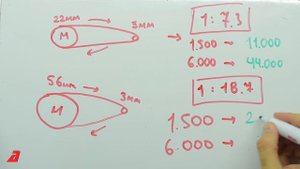 22mm
3mm
M
1:7.3
1.500 → 11.000
6.000 → 44.000
56mm
3mm
M
1:18.7
1.500 → 2
6.000 →